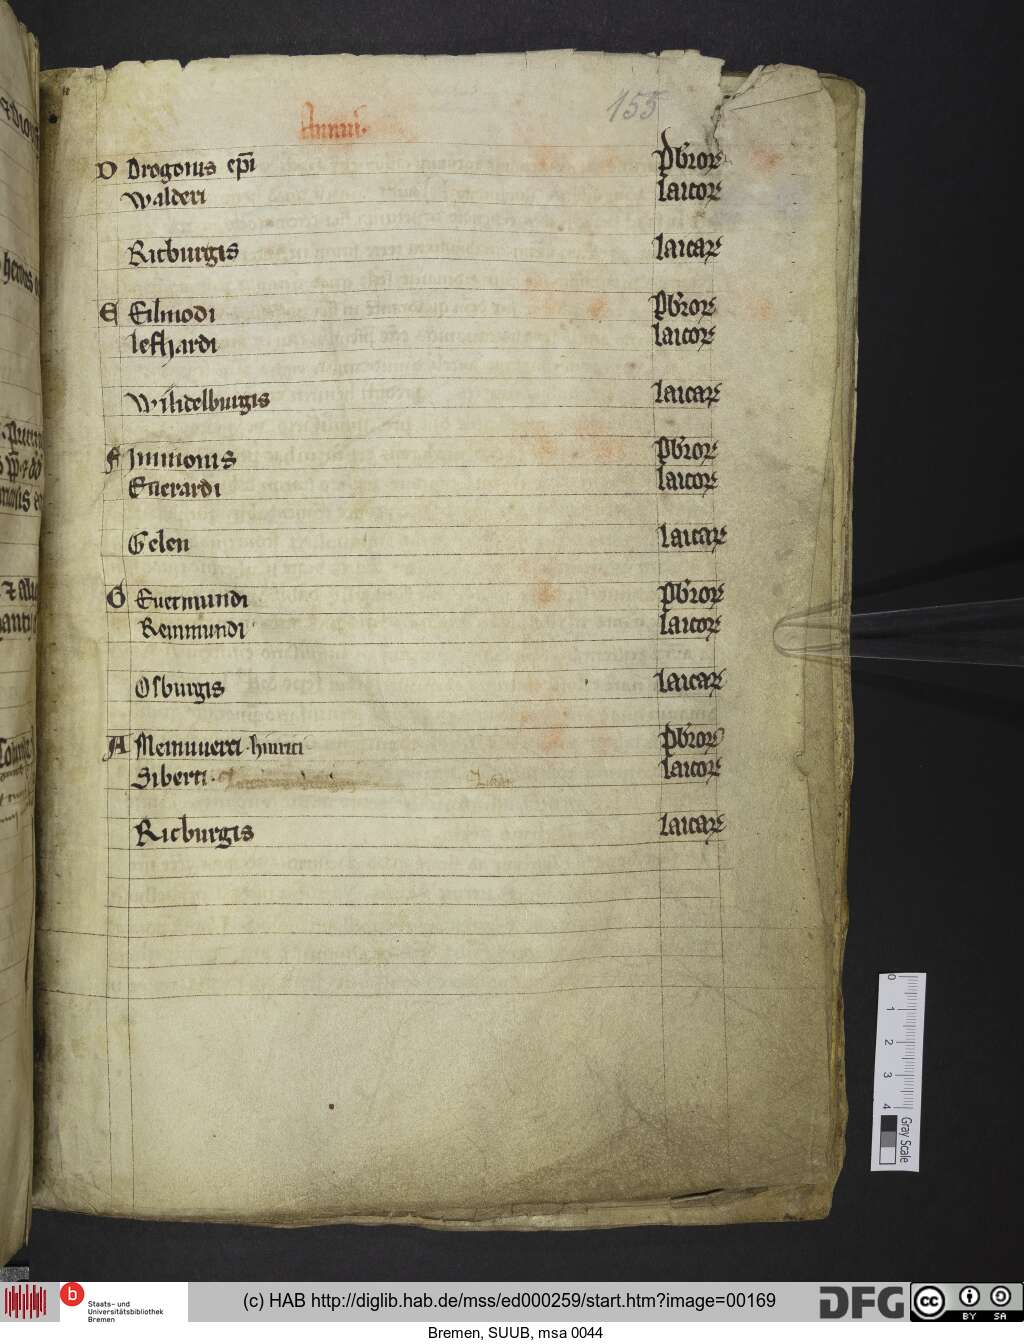 155
D Drogonis ep̄i p̄b̄roꝝ
Walderi laicoꝝ
Ricburgis laicaꝝ
E Eilmodi p̄b̄roꝝ
lefhardi laicoꝝ
Wihtelburgis laicaꝝ
F Immonis p̄b̄roꝝ
Euerardi laicoꝝ
Gelen laicaꝝ
G Euermundi p̄b̄roꝝ
Reinmundi laicoꝝ
Osburgis laicaꝝ
A Meinuuerci hinrici p̄b̄roꝝ
Siberti laicoꝝ
Ricburgis laicaꝝ
0 1 2 3 4 Gray Scale
b Staats- und
Universitätsbibliothek
Bremen
(c) HAB http://diglib.hab.de/mss/ed000259/start.htm?image=00169
DFG
cc BY SA
Bremen, SUUB, msa 0044